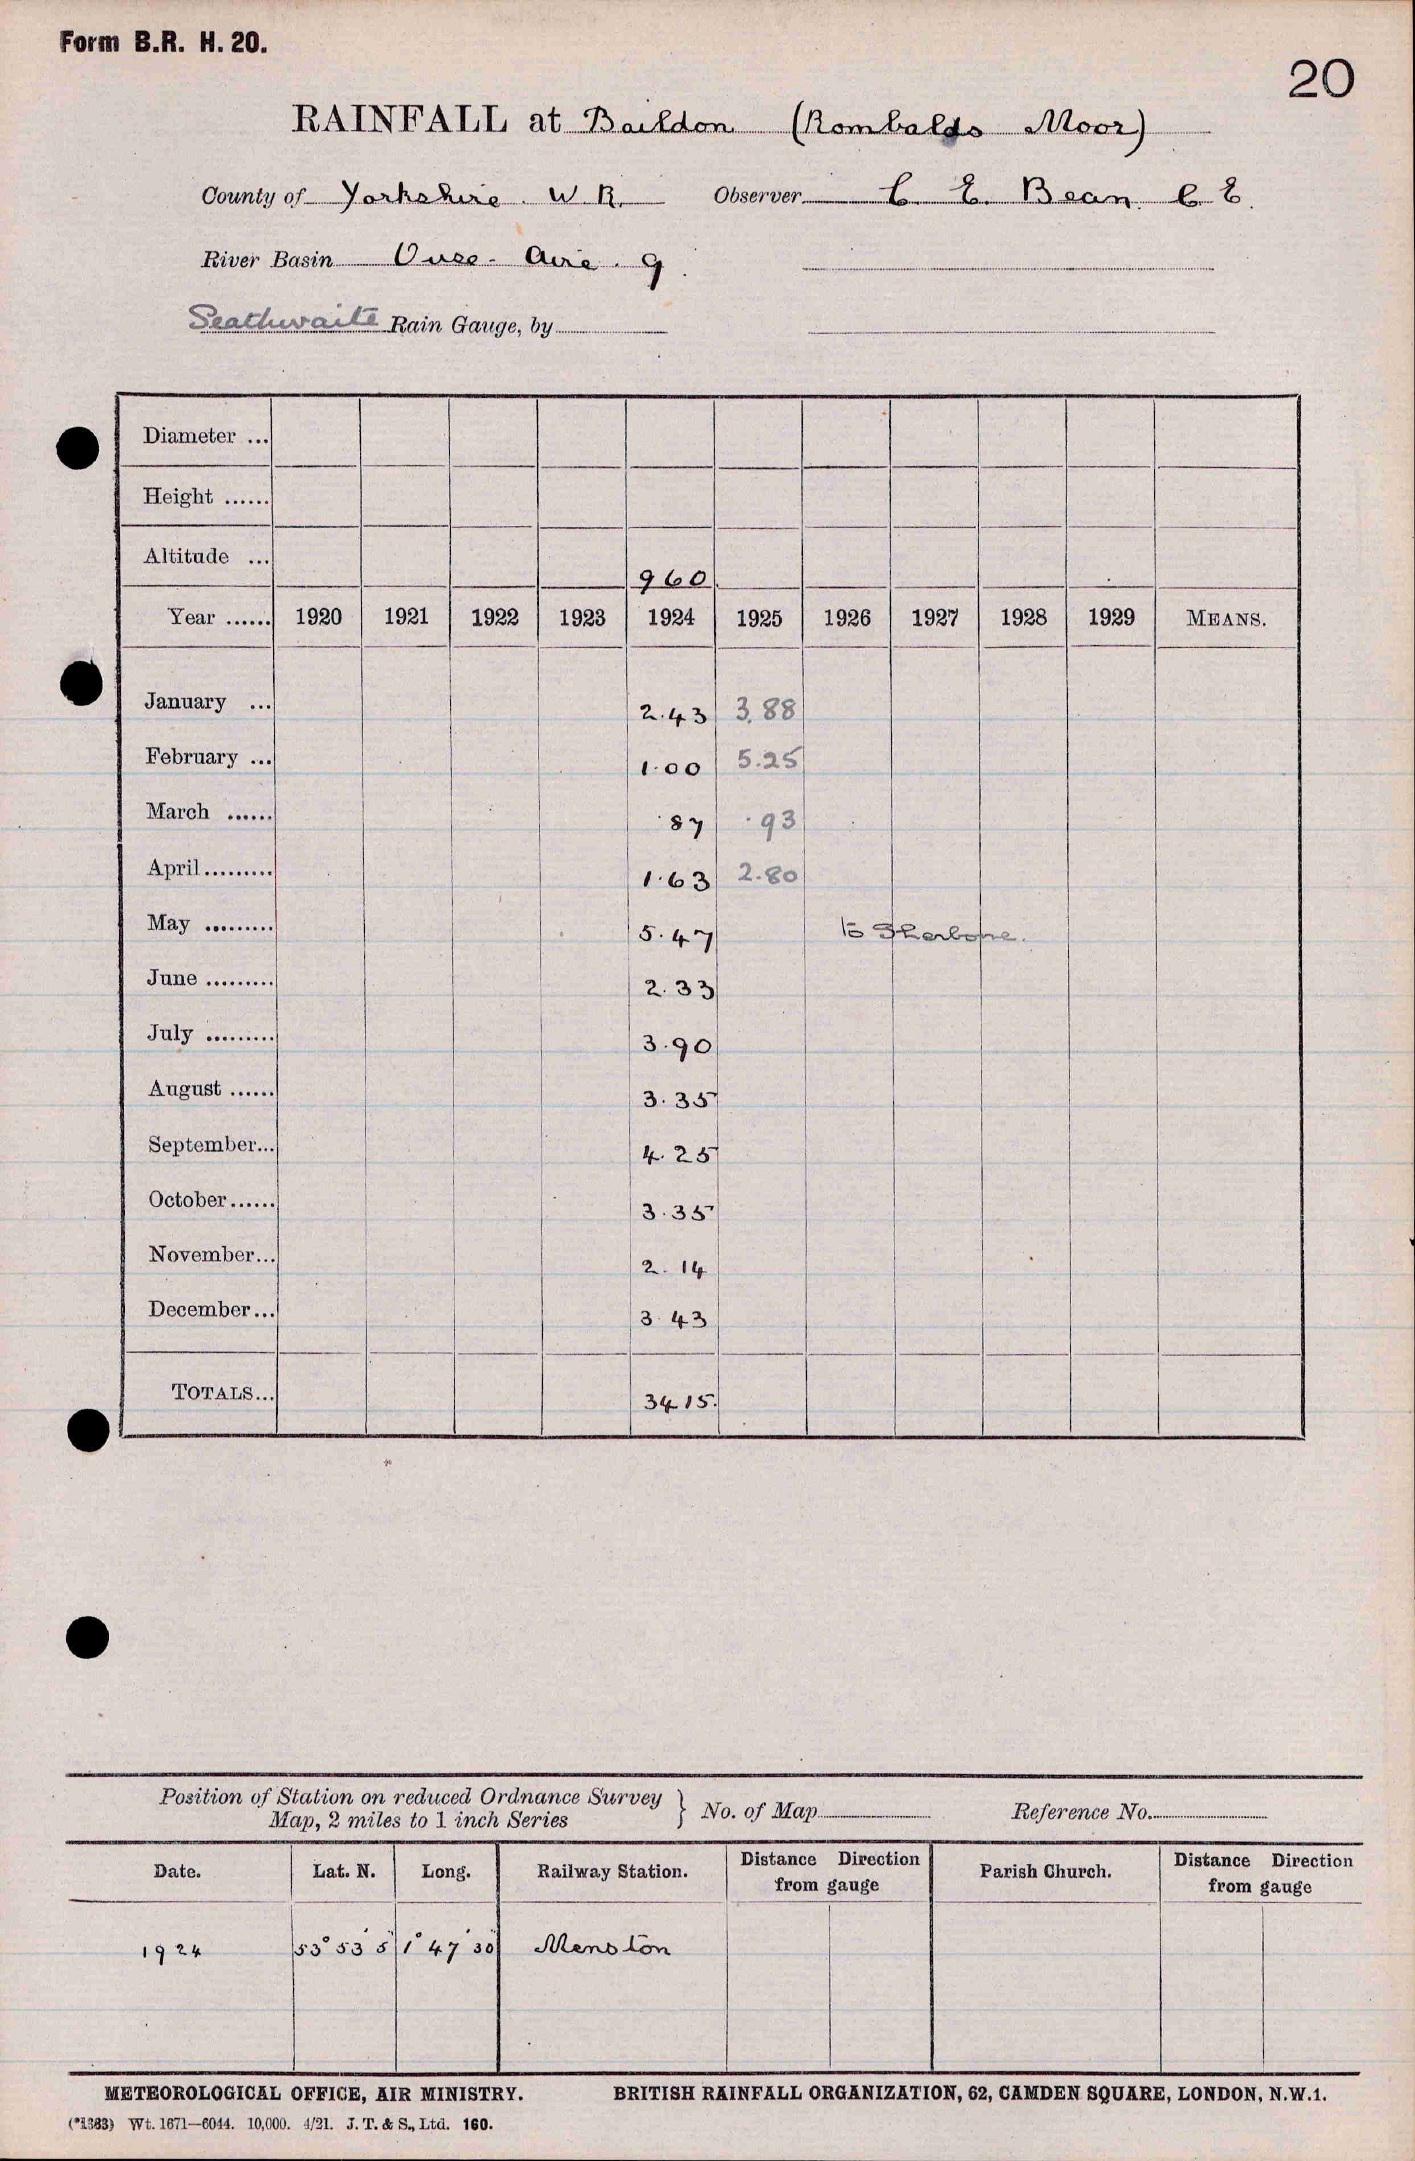 Form B.R. H. 20.
20
RAINFALL at Baildon (Rombalds Moor)
County of Yorkshire. W. R. Observer C. E. Bean. C. E.
River Basin Ouse - Aire. 9.
Seathwaite Rain Gauge, by
Diameter ...
Height ......
Altitude ... 960
Year ...... 1920 1921 1922 1923 1924 1925 1926 1927 1928 1929 MEANS.
January ... 2.43 3.88
February ... 1.00 5.25
March ...... .87 .93
April......... 1.63 2.80
May ......... 5.47 to Sherborne.
June ......... 2.33
July ......... 3.90
August ...... 3.35
September... 4.25
October...... 3.35
November... 2.14
December... 3 43
TOTALS... 34 15.
Position of Station on reduced Ordnance Survey
Map, 2 miles to 1 inch Series } No. of Map Reference No.
Date. Lat. N. Long. Railway Station. Distance Direction from gauge Parish Church. Distance Direction from gauge
1924 53° 53' 5" 1° 47' 30" Menston
METEOROLOGICAL OFFICE, AIR MINISTRY. BRITISH RAINFALL ORGANIZATION, 62, CAMDEN SQUARE, LONDON, N.W.1.
(*1383) Wt. 1671—6044. 10,000. 4/21. J. T. & S., Ltd. 160.